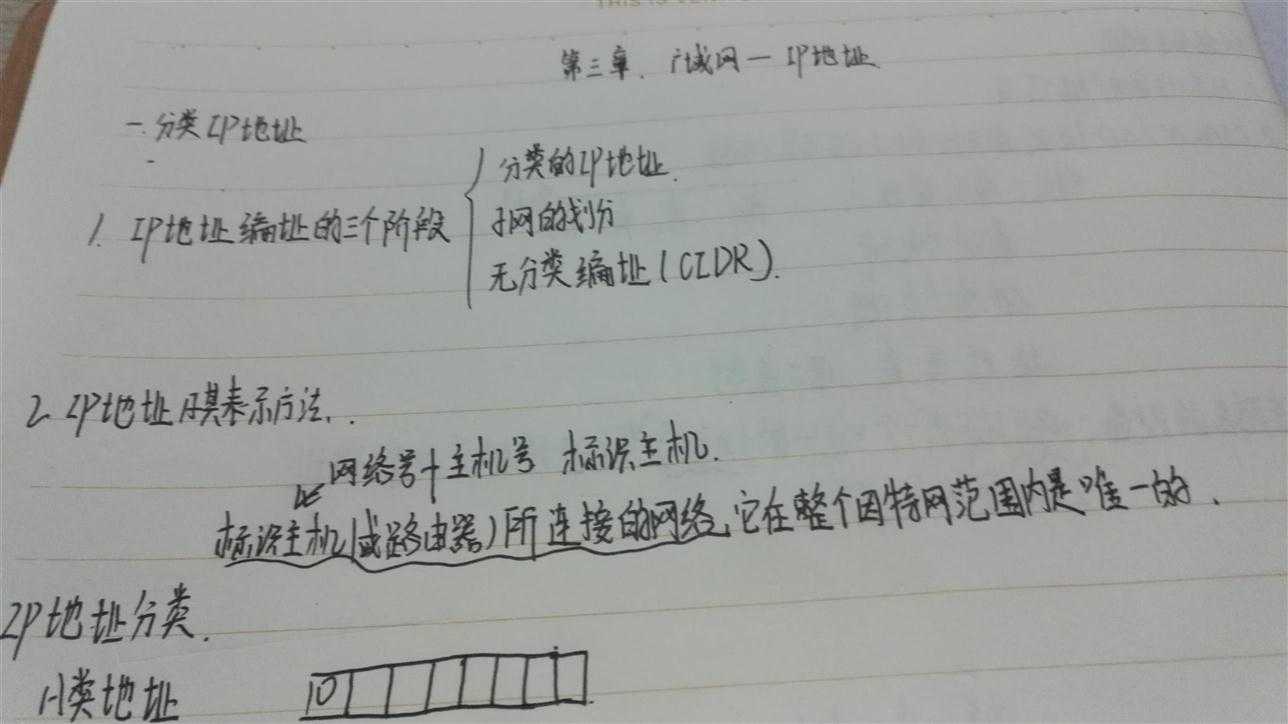 第三章. 广域网一IP地址
一.分类IP地址
1. IP地址编址的三个阶段
分类的IP地址.
子网的划分
无分类编址(CIDR).
2. IP地址及其表示方法..
网络号+主机号 标识主机.
标识主机(或路由器)所连接的网络,它在整个因特网范围内是唯一的.
IP地址分类.
A类地址 0